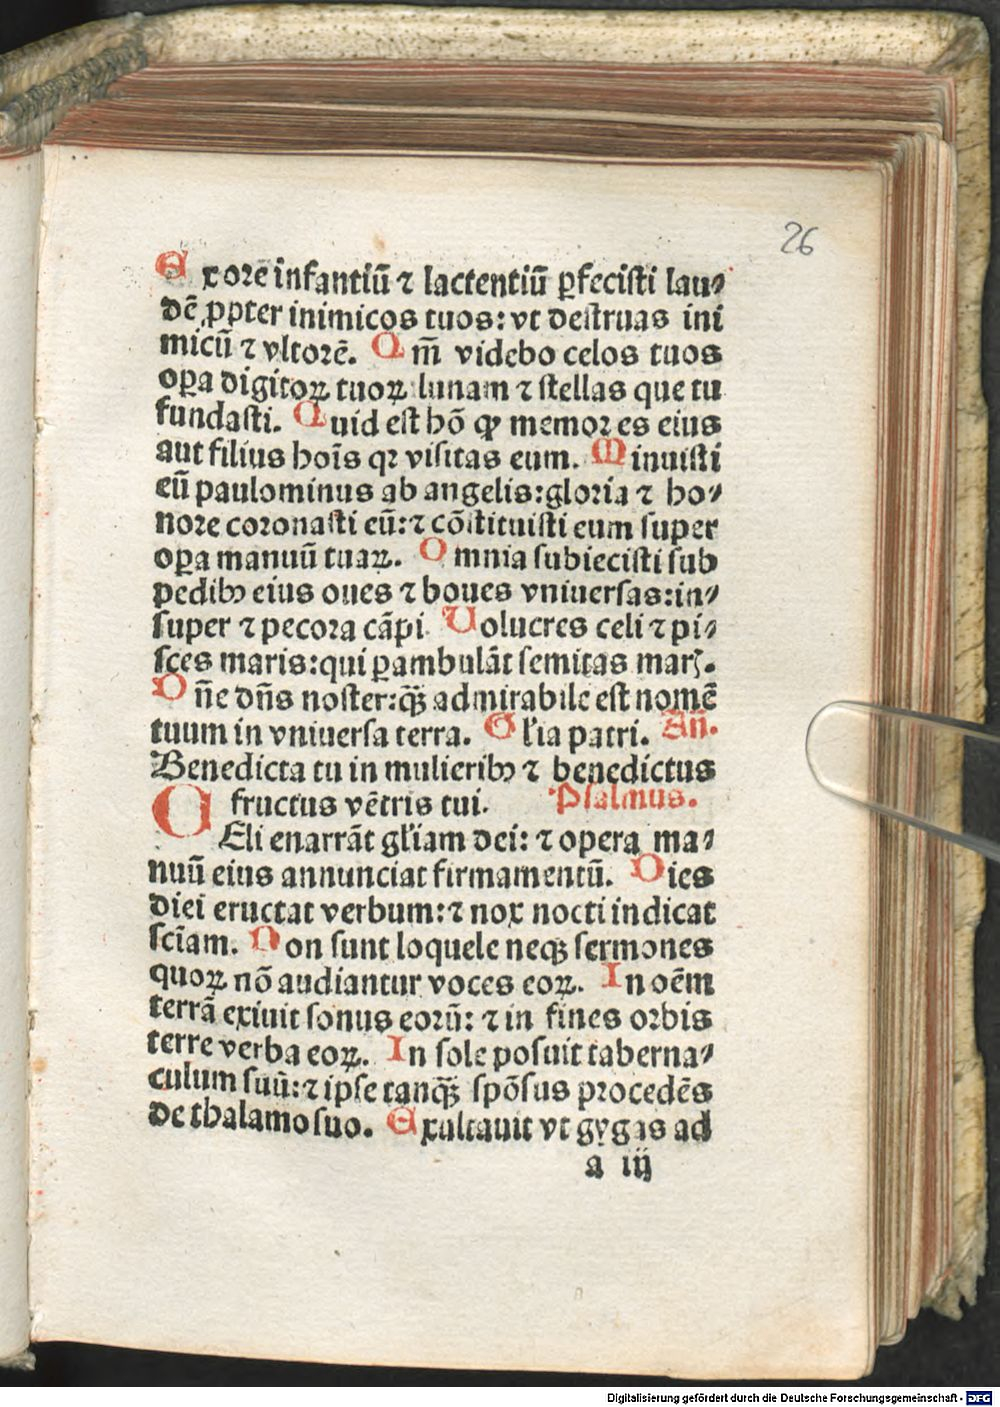 26
Ex orē infantiū ⁊ lactentiū ꝑfecisti lau⸗
dē ꝓpter inimicos tuos: vt destruas ini
micū ⁊ vltorē. Qm̄ videbo celos tuos
oꝑa digitoꝝ tuoꝝ lunam ⁊ stellas que tu
fundasti. Quid est hō ꝙ memor es eius
aut filius hoīs qꝛ visitas eum. Minuisti
eū paulominus ab angelis: gloria ⁊ ho⸗
nore coronasti eū: ⁊ cōstituisti eum super
oꝑa manuū tuaꝝ. Omnia subiecisti sub
pedibꝰ eius oues ⁊ boues vniuersas: in⸗
super ⁊ pecora cāpi. Volucres celi ⁊ pi⸗
sces maris: qui ꝑambulāt semitas marꝭ.
Dñe dñs noster: qꝫ̄ admirabile est nomē
tuum in vniuersa terra. Gľia patri. Añ.
Benedicta tu in mulieribꝰ ⁊ benedictus
fructus vētris tui. Psalmus.
CEli enarrāt gľiam dei: ⁊ opera ma⸗
nuū eius annunciat firmamentū. Dies
diei eructat verbum: ⁊ nox nocti indicat
scīam. Non sunt loquele neqꝫ sermones
quoꝝ nō audiantur voces eoꝝ. In oēm
terrā exiuit sonus eorū: ⁊ in fines orbis
terre verba eoꝝ. In sole posuit taberna⸗
culum suū: ⁊ ipse tanqꝫ̄ spōsus procedēs
de thalamo suo. Exultauit vt gygas ad
a iij
Digitalisierung gefördert durch die Deutsche Forschungsgemeinschaft - DFG